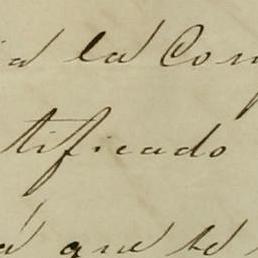 a la Con
tificado
á que se